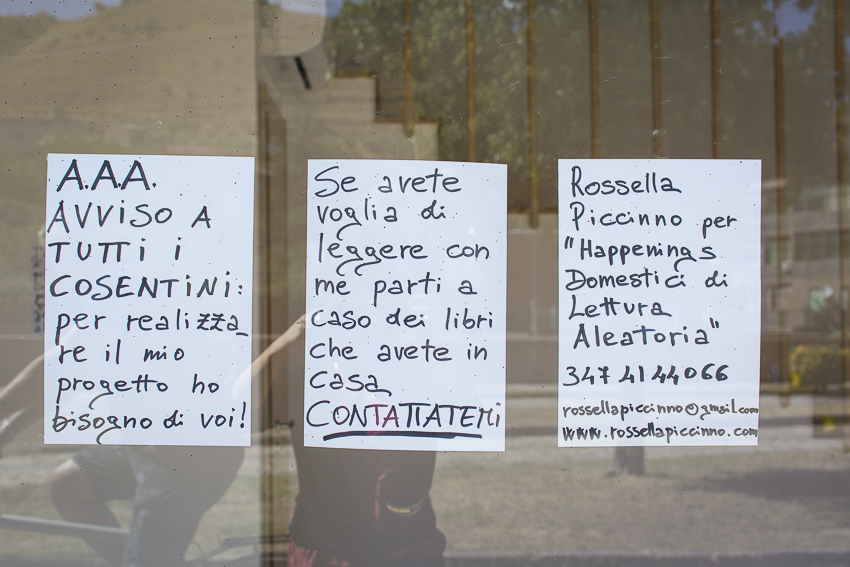 A.A.A.
AVVISO A
TUTTi i
COSENTiNi:
per realizza_
re il mio
progetto ho
bisogno di voi!
Se avete
voglia di
leggere con
me parti a
caso dei libri
che avete in
casa
CONTATTATEMi
Rossella
Piccinno per
"Happenings
Domestici di
Lettura
Aleatoria"
347 4144066
rossellapiccinno@gmail.com
www.rossellapiccinno.com